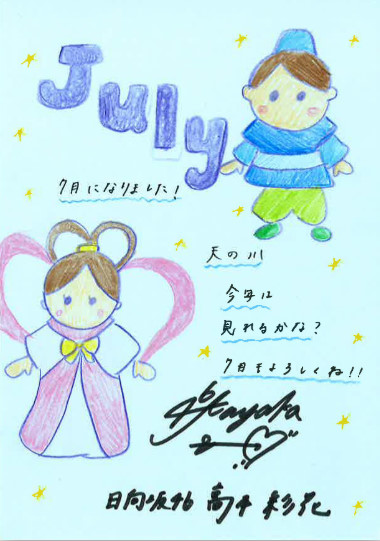 July
7月になりました!
天の川
今年は
見れるかな?
7月もよろしくね!!
日向坂46 高本彩花